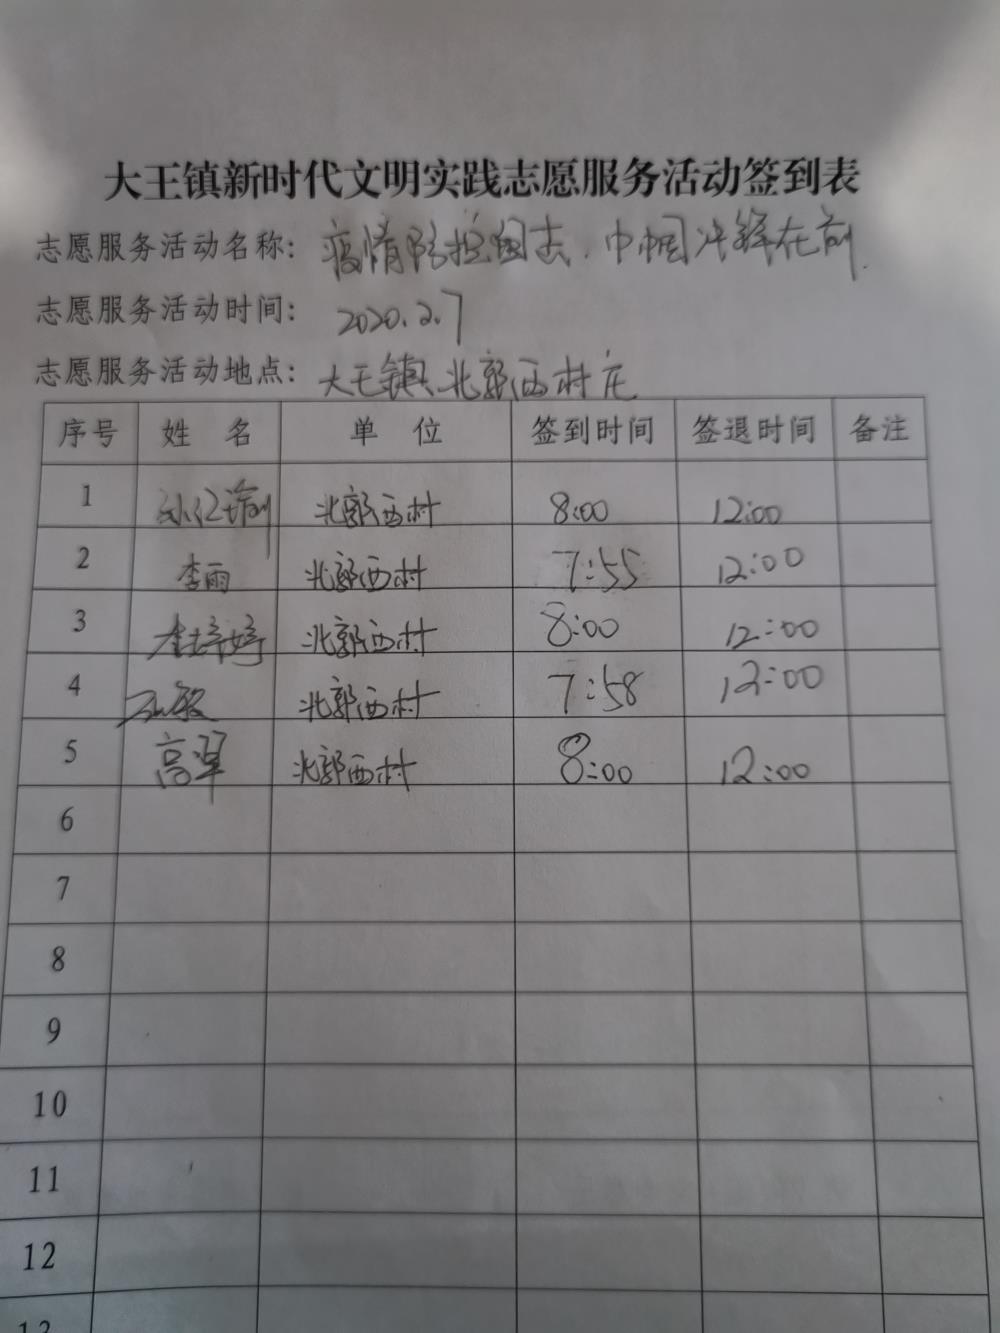 大王镇新时代文明实践志愿服务活动签到表
志愿服务活动名称：疫情防控阻击、巾帼冲锋在前.
志愿服务活动时间：2020.2.7
志愿服务活动地点：大王镇北郭西村庄
序号 姓 名 单 位 签到时间 签退时间 备注
1 北郭西村 8:00 12:00
2 李雨 北郭西村 7:55 12:00
3 李婷婷 北郭西村 8:00 12:00
4 北郭西村 7:58 12:00
5 高翠 北郭西村 8:00 12:00
6
7
8
9
10
11
12
13